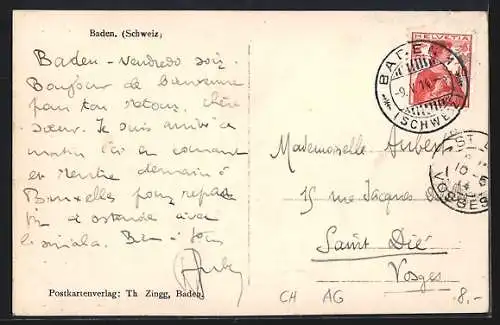 Baden. (Schweiz)
Baden - Vendredi soir
Bonjour de bienvenue
pour ton retour, chère
sœur. Je suis arrivé ce
matin
et rentre demain à
Bruxelles pour
Ostende avec
Bien à tous
Aubert
Postkartenverlag: Th Zingg, Baden.
HELVETIA
BADEN 1
(SCHWEIZ)
ST
10
5
14
VOSGES
Mademoiselle Aubert
15 rue Jacques
Saint Dié
Vosges
CH AG 8,-